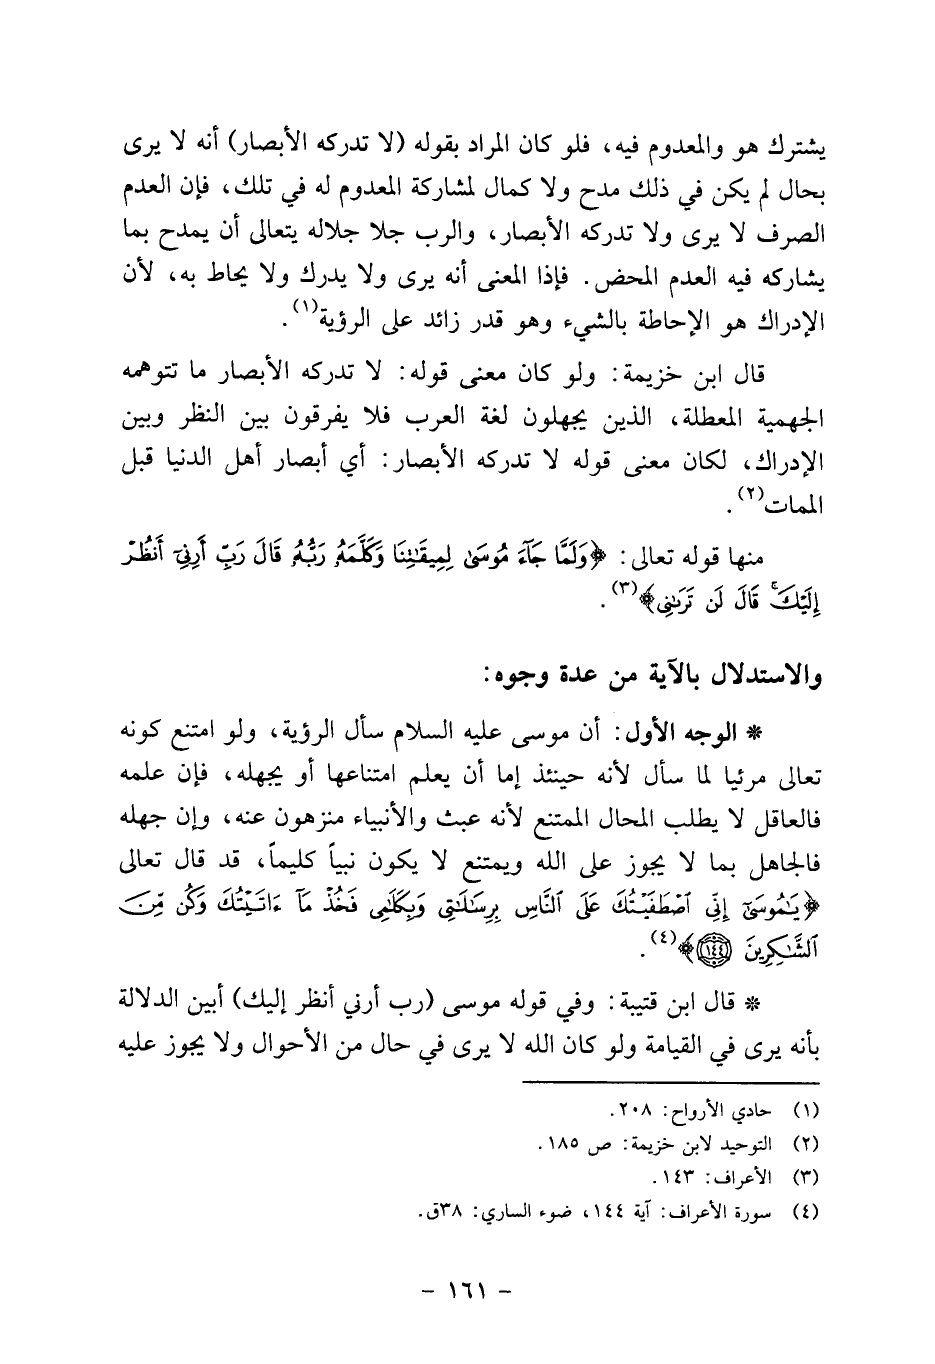 يشترك هو والمعدوم فيه، فلو كان المراد بقوله (لا تدركه الأبصار) أنه لا يرى
بحال لم يكن في ذلك مدح ولا كمال لمشاركة المعدوم له في تلك، فإن العدم
الصرف لا يرى ولا تدركه الأبصار، والرب جلا جلاله يتعالى أن يمدح بما
يشاركه فيه العدم المحض. فإذا المعنى أنه يرى ولا يدرك ولا يحاط به، لأن
الإدراك هو الإحاطة بالشيء وهو قدر زائد على الرؤية(١).
قال ابن خزيمة: ولو كان معنى قوله: لا تدركه الأبصار ما تتوهمه
الجهمية المعطلة، الذين يجهلون لغة العرب فلا يفرقون بين النظر وبين
الإدراك، لكان معنى قوله لا تدركه الأبصار: أي أبصار أهل الدنيا قبل
الممات(٢).
منها قوله تعالى: ﴿وَلَمَّا جَآءَ مُوسَىٰ لِمِيقَٰتِنَا وَكَلَّمَهُۥ رَبُّهُۥ قَالَ رَبِّ أَرِنِيٓ أَنظُرْ
إِلَيْكَۚ قَالَ لَن تَرَىٰنِي﴾(٣).
والاستدلال بالآية من عدة وجوه:
* الوجه الأول: أن موسى عليه السلام سأل الرؤية، ولو امتنع كونه
تعالى مرئيا لما سأل لأنه حينئذ إما أن يعلم امتناعها أو يجهله، فإن علمه
فالعاقل لا يطلب المحال الممتنع لأنه عبث والأنبياء منزهون عنه، وإن جهله
فالجاهل بما لا يجوز على الله ويمتنع لا يكون نبياً كليماً، قد قال تعالى
﴿يَٰمُوسَىٰٓ إِنِّي ٱصْطَفَيْتُكَ عَلَى ٱلنَّاسِ بِرِسَٰلَٰتِي وَبِكَلَٰمِي فَخُذْ مَآ ءَاتَيْتُكَ وَكُن مِّنَ
ٱلشَّٰكِرِينَ ١٤٤﴾(٤).
* قال ابن قتيبة: وفي قوله موسى (رب أرني أنظر إليك) أبين الدلالة
بأنه يرى في القيامة ولو كان الله لا يرى في حال من الأحوال ولا يجوز عليه
(١) حادي الأرواح: ٢٠٨.
(٢) التوحيد لابن خزيمة: ص ١٨٥.
(٣) الأعراف: ١٤٣.
(٤) سورة الأعراف: آية ١٤٤، ضوء الساري: ٣٨ق.
- ١٦١ -